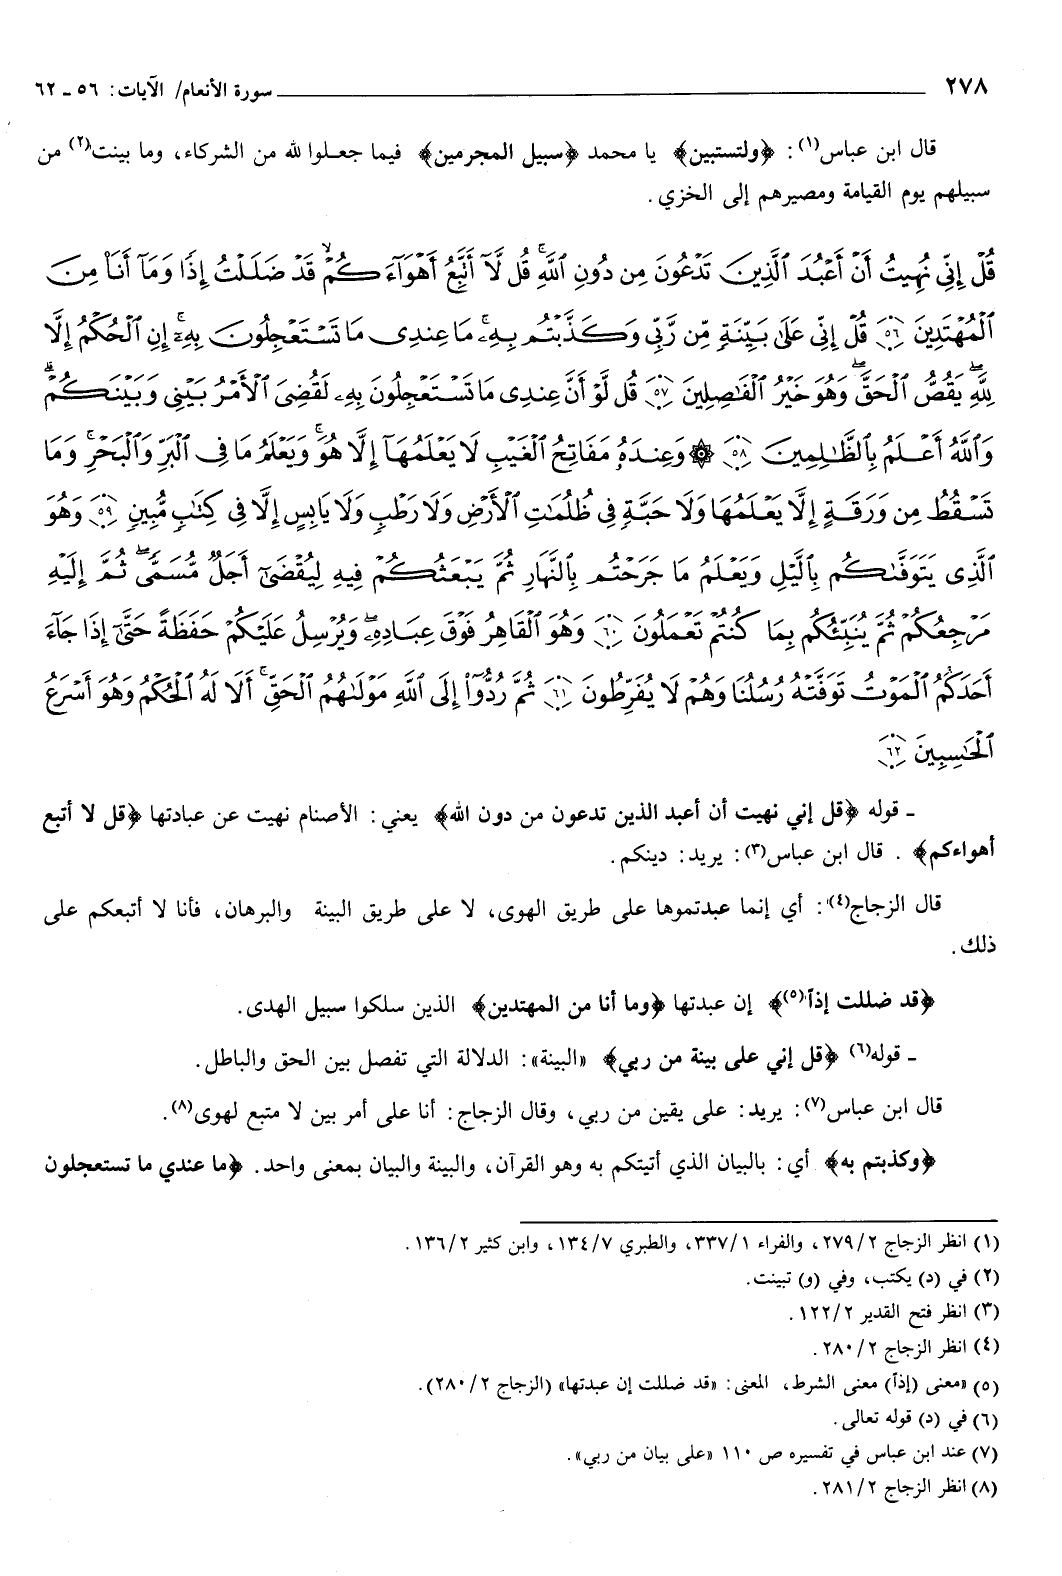 ٢٧٨ سورة الأنعام/ الآيات: ٥٦ ـ ٦٢
قال ابن عباس(١): ﴿ولتستبين﴾ يا محمد ﴿سبيل المجرمين﴾ فيما جعلوا لله من الشركاء، وما بينت(٢) من
سبيلهم يوم القيامة ومصيرهم إلى الخزي.
قُلْ إِنِّي نُهِيتُ أَنْ أَعْبُدَ ٱلَّذِينَ تَدْعُونَ مِن دُونِ ٱللَّهِۚ قُل لَّآ أَتَّبِعُ أَهْوَآءَكُمْۙ قَدْ ضَلَلْتُ إِذًا وَمَآ أَنَا۠ مِنَ
ٱلْمُهْتَدِينَ ٥٦ قُلْ إِنِّي عَلَىٰ بَيِّنَةٍ مِّن رَّبِّي وَكَذَّبْتُم بِهِۦۚ مَا عِندِي مَا تَسْتَعْجِلُونَ بِهِۦٓۚ إِنِ ٱلْحُكْمُ إِلَّا
لِلَّهِۖ يَقُصُّ ٱلْحَقَّۖ وَهُوَ خَيْرُ ٱلْفَٰصِلِينَ ٥٧ قُل لَّوْ أَنَّ عِندِي مَا تَسْتَعْجِلُونَ بِهِۦ لَقُضِيَ ٱلْأَمْرُ بَيْنِي وَبَيْنَكُمْۗ
وَٱللَّهُ أَعْلَمُ بِٱلظَّٰلِمِينَ ٥٨ ۞ وَعِندَهُۥ مَفَاتِحُ ٱلْغَيْبِ لَا يَعْلَمُهَآ إِلَّا هُوَۚ وَيَعْلَمُ مَا فِي ٱلْبَرِّ وَٱلْبَحْرِۚ وَمَا
تَسْقُطُ مِن وَرَقَةٍ إِلَّا يَعْلَمُهَا وَلَا حَبَّةٍ فِي ظُلُمَٰتِ ٱلْأَرْضِ وَلَا رَطْبٍ وَلَا يَابِسٍ إِلَّا فِي كِتَٰبٍ مُّبِينٍ ٥٩ وَهُوَ
ٱلَّذِي يَتَوَفَّىٰكُم بِٱلَّيْلِ وَيَعْلَمُ مَا جَرَحْتُم بِٱلنَّهَارِ ثُمَّ يَبْعَثُكُمْ فِيهِ لِيُقْضَىٰٓ أَجَلٌ مُّسَمًّىۖ ثُمَّ إِلَيْهِ
مَرْجِعُكُمْ ثُمَّ يُنَبِّئُكُم بِمَا كُنتُمْ تَعْمَلُونَ ٦٠ وَهُوَ ٱلْقَاهِرُ فَوْقَ عِبَادِهِۦۖ وَيُرْسِلُ عَلَيْكُمْ حَفَظَةً حَتَّىٰٓ إِذَا جَآءَ
أَحَدَكُمُ ٱلْمَوْتُ تَوَفَّتْهُ رُسُلُنَا وَهُمْ لَا يُفَرِّطُونَ ٦١ ثُمَّ رُدُّوٓا۟ إِلَى ٱللَّهِ مَوْلَىٰهُمُ ٱلْحَقِّۚ أَلَا لَهُ ٱلْحُكْمُ وَهُوَ أَسْرَعُ
ٱلْحَٰسِبِينَ ٦٢
ـ قوله ﴿قل إني نهيت أن أعبد الذين تدعون من دون الله﴾ يعني: الأصنام نهيت عن عبادتها ﴿قل لا أتبع
أهواءكم﴾ . قال ابن عباس(٣): يريد: دينكم.
قال الزجاج(٤): أي إنما عبدتموها على طريق الهوى، لا على طريق البينة والبرهان، فأنا لا أتبعكم على
ذلك.
﴿قد ضللت إذاً(٥)﴾ إن عبدتها ﴿وما أنا من المهتدين﴾ الذين سلكوا سبيل الهدى.
ـ قوله(٦) ﴿قل إني على بينة من ربي﴾ «البينة»: الدلالة التي تفصل بين الحق والباطل.
قال ابن عباس(٧): يريد: على يقين من ربي، وقال الزجاج: أنا على أمر بين لا متبع لهوى(٨).
﴿وكذبتم به﴾ أي: بالبيان الذي أتيتكم به وهو القرآن، والبينة والبيان بمعنى واحد. ﴿ما عندي ما تستعجلون
(١) انظر الزجاج ٢/٢٧٩، والفراء ١/٣٣٧، والطبري ٧/١٣٤، وابن كثير ٢/١٣٦.
(٢) في (د) يكتب، وفي (و) تبينت.
(٣) انظر فتح القدير ٢/١٢٢.
(٤) انظر الزجاج ٢/٢٨٠.
(٥) «معنى (إذاً) معنى الشرط، المعنى: «قد ضللت إن عبدتها» (الزجاج ٢/٢٨٠).
(٦) في (د) قوله تعالى.
(٧) عند ابن عباس في تفسيره ص ١١٠ «على بيان من ربي».
(٨) انظر الزجاج ٢/٢٨١.